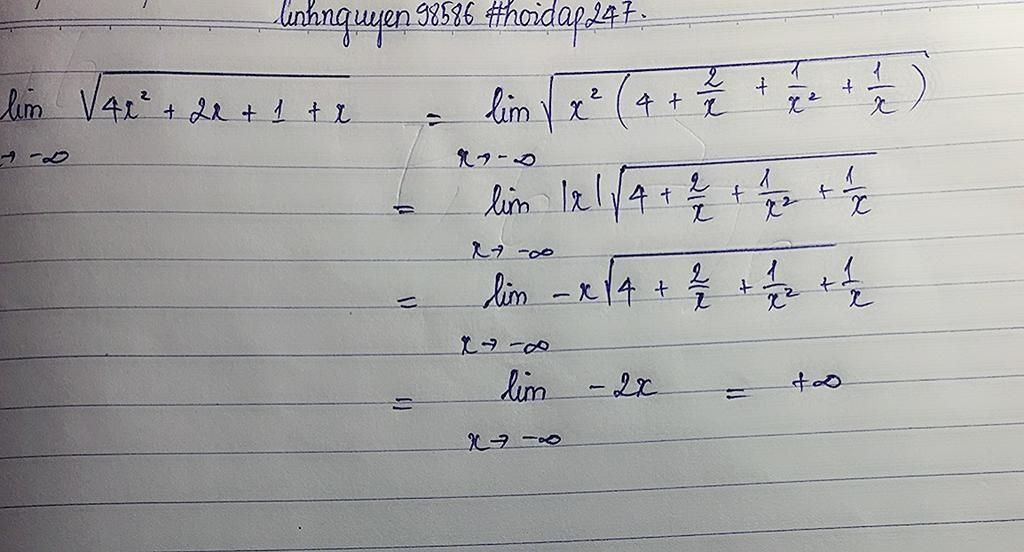 linhnguyen98586 #hoidap247.
lim √(4x² + 2x + 1 + x) = lim √(x² (4 + 2/x + 1/x² + 1/x))
→ -∞ x → -∞
= lim |x| √(4 + 2/x + 1/x² + 1/x)
x → -∞
= lim -x √(4 + 2/x + 1/x²) + 1/x
x → -∞
= lim -2x = +∞
x → -∞